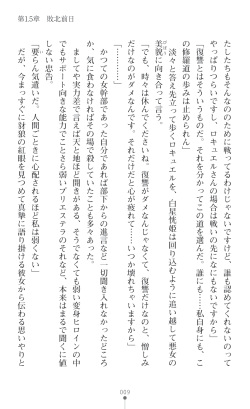 第15章　敗北前日
たしたちもそんなののために戦ってるわけじゃないですけど、誰も認めてくれないのっ
てやっぱりつらいですし、ロキュエルさんの場合は戦いの先になにもないですから」
「復讐とはそういうものだ。それを分かってこの道を選んだ。誰にも……私自身にも、こ
の修羅道の歩みは止められん」
淡々と答え先立って歩くロキュエルを、白星恍姫は回り込むように追い越して悪女の
美貌に向き合って言う。
「でも、時々は休んでくださいね。復讐がダメなんじゃなくて、復讐だけなのと、憎しみ
だけなのがダメなんです。それだけだと心が疲れて……いつか壊れちゃいますから」
「………」
かつての女幹部であった自分であれば部下からの進言など一切聞き入れなかったどころ
か、気に食わなければその場で殺していたことも多々あった。
ましてや実力差で言えば天と地ほど開きがある、そうでなくても弱い変身ヒロインの中
でもサポート向きな能力でことさら弱いプリエステラのそれなど、本来はまるで聞くに値
しない忠告。
「要らん気遣いだ。人間ごときに心配されるほど私は弱くない」
だが、今まっすぐに豺狼の紅眼を見つめて真摯に語り掛ける彼女から伝わる思いやりと
009